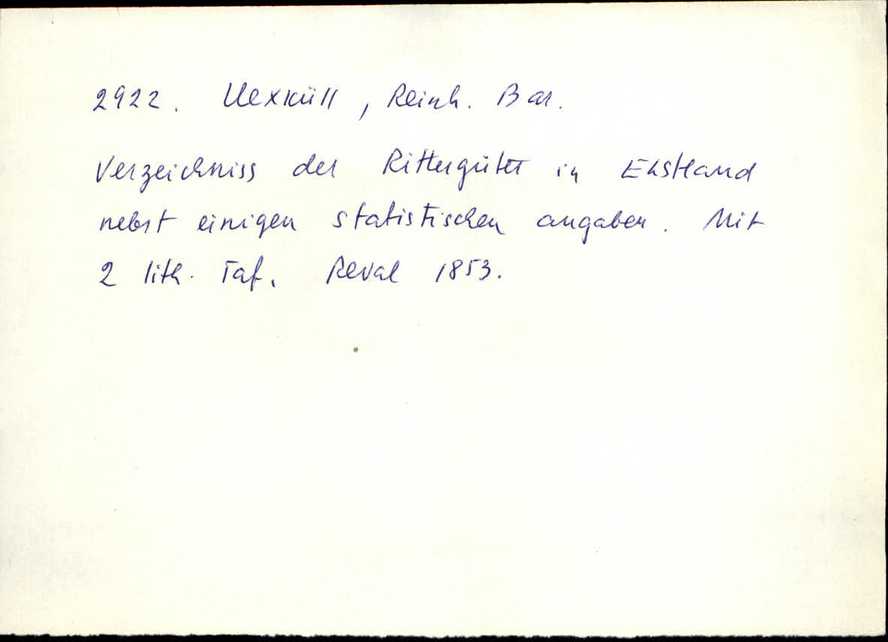 2922. Uexküll, Reinh. Bar.
Verzeichniss der Rittergüter in Ehstland
nebst einigen statistischen angaben. Mit
2 lith. Taf. Reval 1853.